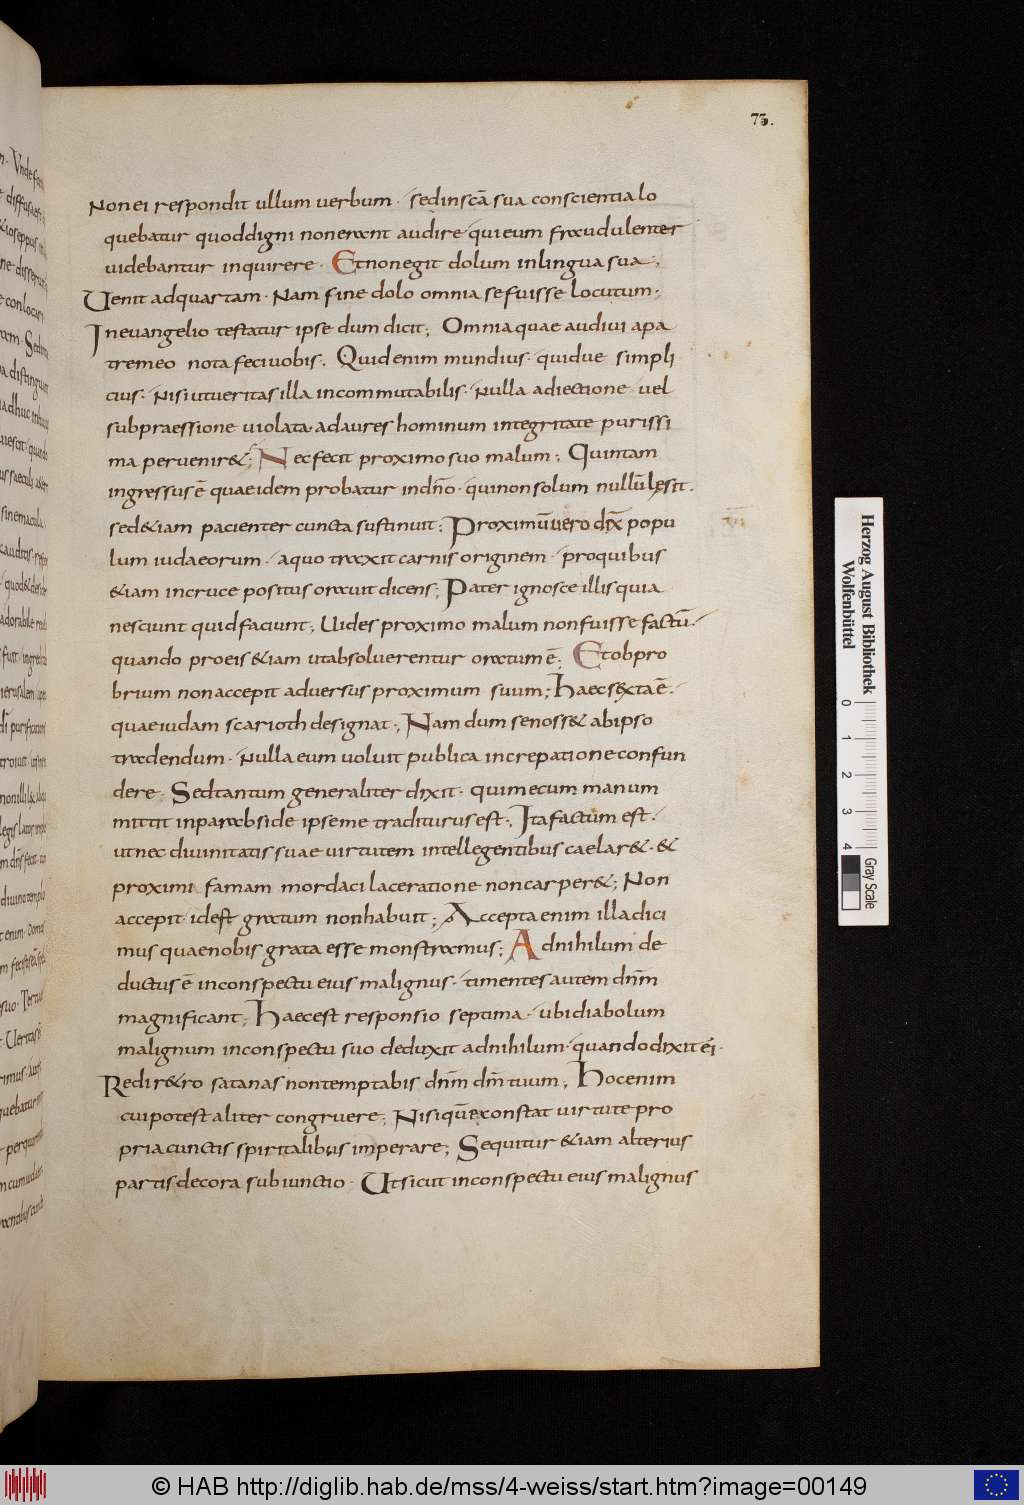 73.
Non ei respondit ullum uerbum · sed insc̄a sua conscientia lo
quebatur quod digni non erant audire · qui eum fraudulenter
uidebantur inquirere · Et non egit dolum in lingua sua ·,
Uenit ad quartam · Nam sine dolo omnia se fuisse locutum ·,
In euangelio testatur ipse dum dicit ; Omnia quae audiui a pa
tre meo nota feci uobis . Quid enim mundius · quid ue simpli
cius · Nisi ut ueritas illa incommutabilis · Nulla adiectione uel
subpraessione uiolata · ad aures hominum integritate purissi
ma perueniret ; Nec fecit proximo suo malum ; Quintam
ingressus ē quae idem probatur in dn̄o · qui non solum nullū lęsit .
sed &iam pacienter cuncta sustinuit ; Proximū uero dix̄ popu
lum iudaeorum · a quo traxit carnis originem · pro quibus
&iam in cruce positus orauit dicens ; Pater ignosce illis quia
nesciunt quid faciunt ; Uides proximo malum non fuisse factū ·
quando pro eis &iam ut absoluerentur oratum ē ; Et obpro
brium non accepit aduersus proximum suum ; Haec sexta ē ·
quae iudam scarioth designat ·, Nam dum se noss& ab ipso
tradendum · Nulla eum uoluit publica increpatione confun
dere · Sed tantum generaliter dixit · qui mecum manum
mittit in parabside ipse me traditurus est ·, Ita factum est ·
ut nec diuinitatis suae uirtutem intellegentibus caelar& · &
proximi famam mordaci laceratione non carper& ; Non
accepit · id est gratum non habuit ; Accepta enim illa dici
mus quae nobis grata esse monstramus ; Ad nihilum de
ductus ē in conspectu eius malignus · timentes autem dn̄m
magnificant ; Haec est responsio septima · ubi diabolum
malignum in conspectu suo deduxit ad nihilum · quando dixit ei ·
Redi r&ro satanas non temptabis dn̄m dm̄ tuum ; Hoc enim
cui potest aliter congruere ; Nisi quem constat uirtute pro
pria cunctis spiritalibus imperare ; Sequitur &iam alterius
partis decora subiunctio · Ut sicut in conspectu eius malignus
Herzog August Bibliothek
Wolfenbüttel
0 1 2 3 4
Gray Scale
© HAB http://diglib.hab.de/mss/4-weiss/start.htm?image=00149